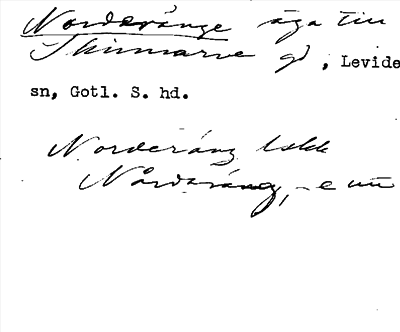 Norderänge äga till
Skinnarve gd, Levide
sn, Gotl. S. hd.
Norderäng
Nårderäng, -e